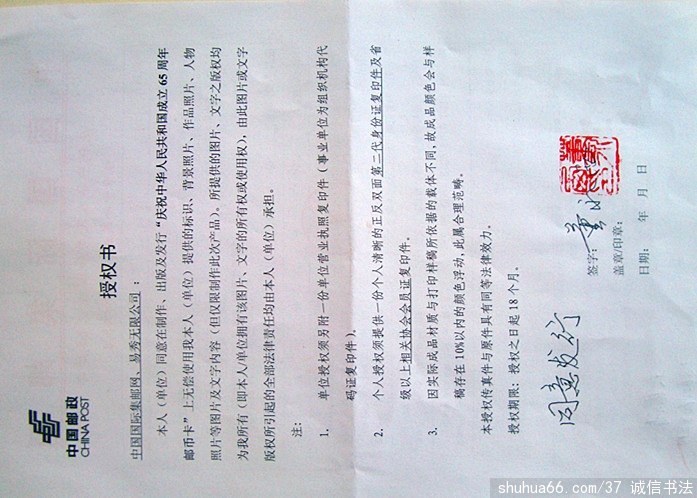 中国邮政
CHINA POST
授权书
中国国际集邮网、易秀托限公司：
本人（单位）同意在制作、出版及发行“庆祝中华人民共和国成立 65 周年
邮币卡”上无偿使用我本人（单位）提供的标识、背景照片、作品照片、人物
照片等图片及文字内容（但仅限制作此次产品）。所提供的图片、文字之版权均
为我所有（即本人/单位拥有该图片、文字的所有权或使用权），由此图片或文字
版权所引起的全部法律责任均由本人（单位）承担。
注：
1. 单位授权须另附一份单位营业执照复印件（事业单位为组织机构代
码证复印件）。
2. 个人授权须提供一份个人清晰的正反双面第二代身份证复印件及省
级以上相关协会会员证复印件。
3. 因实际成品材质与打印样稿所依据的载体不同，故成品颜色会与样
稿存在 10%以内的颜色浮动，此属合理范畴。
本授权传真件与原件具有同等法律效力。
授权期限：授权之日起 18 个月。
签字：
盖章/印章：
日期： 年 月 日
同意发行
shuhua66.com/37 诚信书法